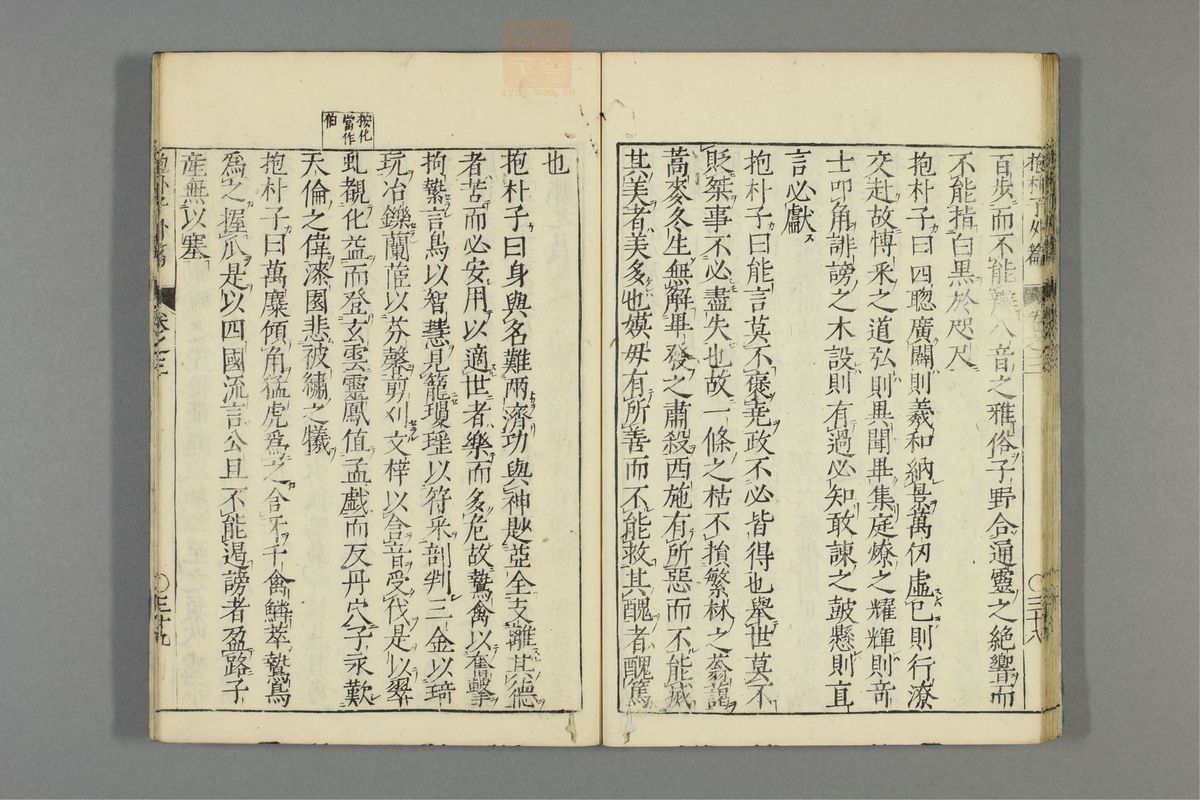 百歩而不能辨八音之雅俗子野合通靈之絶響而
不能指白黒於咫尺
抱朴子曰四聰廣闢則羲和納景萬仞虛己則行潦
交赴故博采之道弘則異聞畢集庭燎之耀輝則奇
士叩角誹謗之木設則有過必知敢諫之皷懸則直
言必獻
抱朴子曰能言莫不褒堯政不必皆得也舉世莫不
貶桀事不必盡失也故一條之枯不損繁林之蓊藹
蒿麥冬生無解畢發之肅殺西施有所惡而不能減
其美者美多也嫫母有所善而不能救其醜者醜篤
也
抱朴子曰身與名難兩濟功與神尟並全支離其德
者苦而必安用以適世者樂而多危故鷙禽以奮擊
拘縶言鳥以智慧見籠瓊瑶以符采剖判三金以琦
玩冶鑠蘭茝以芬馨剪刈文梓以含音受伐是以翠
虬覩化益而登玄雲靈鳳值孟戲而反丹穴子永歎
天倫之偉漆園悲被繡之犧
抱朴子曰萬麋傾角猛虎為之含牙千禽鱗萃鷙鳥
為之握爪是以四國流言公旦不能遏謗者盈路子
産無以塞
按化
當作
伯
抱朴子外篇
卷之三
〇三十八
〇三十九